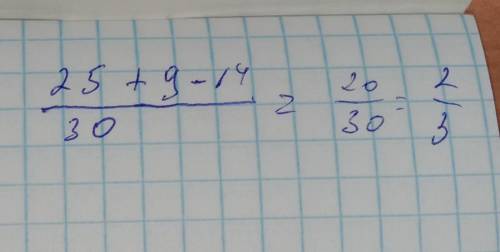 25 + 9 - 14 / 30 = 20/30 = 2/3